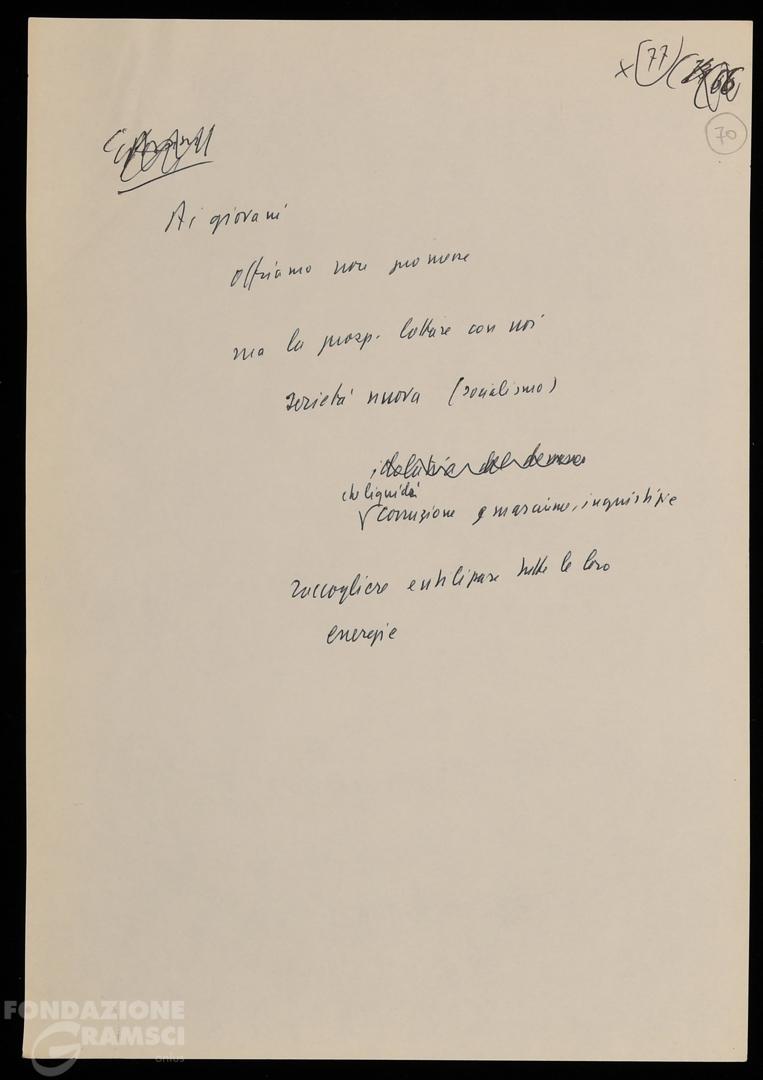 x (77) (66
70
Ai giovani
offriamo non promesse
ma la prosp. lottare con noi
società nuova (socialismo)
idolatria del denaro
che liquidi
corruzione e marciume, ingiustizie
raccogliere e utilizzare tutte le loro
energie
FONDAZIONE
GRAMSCI
onlus